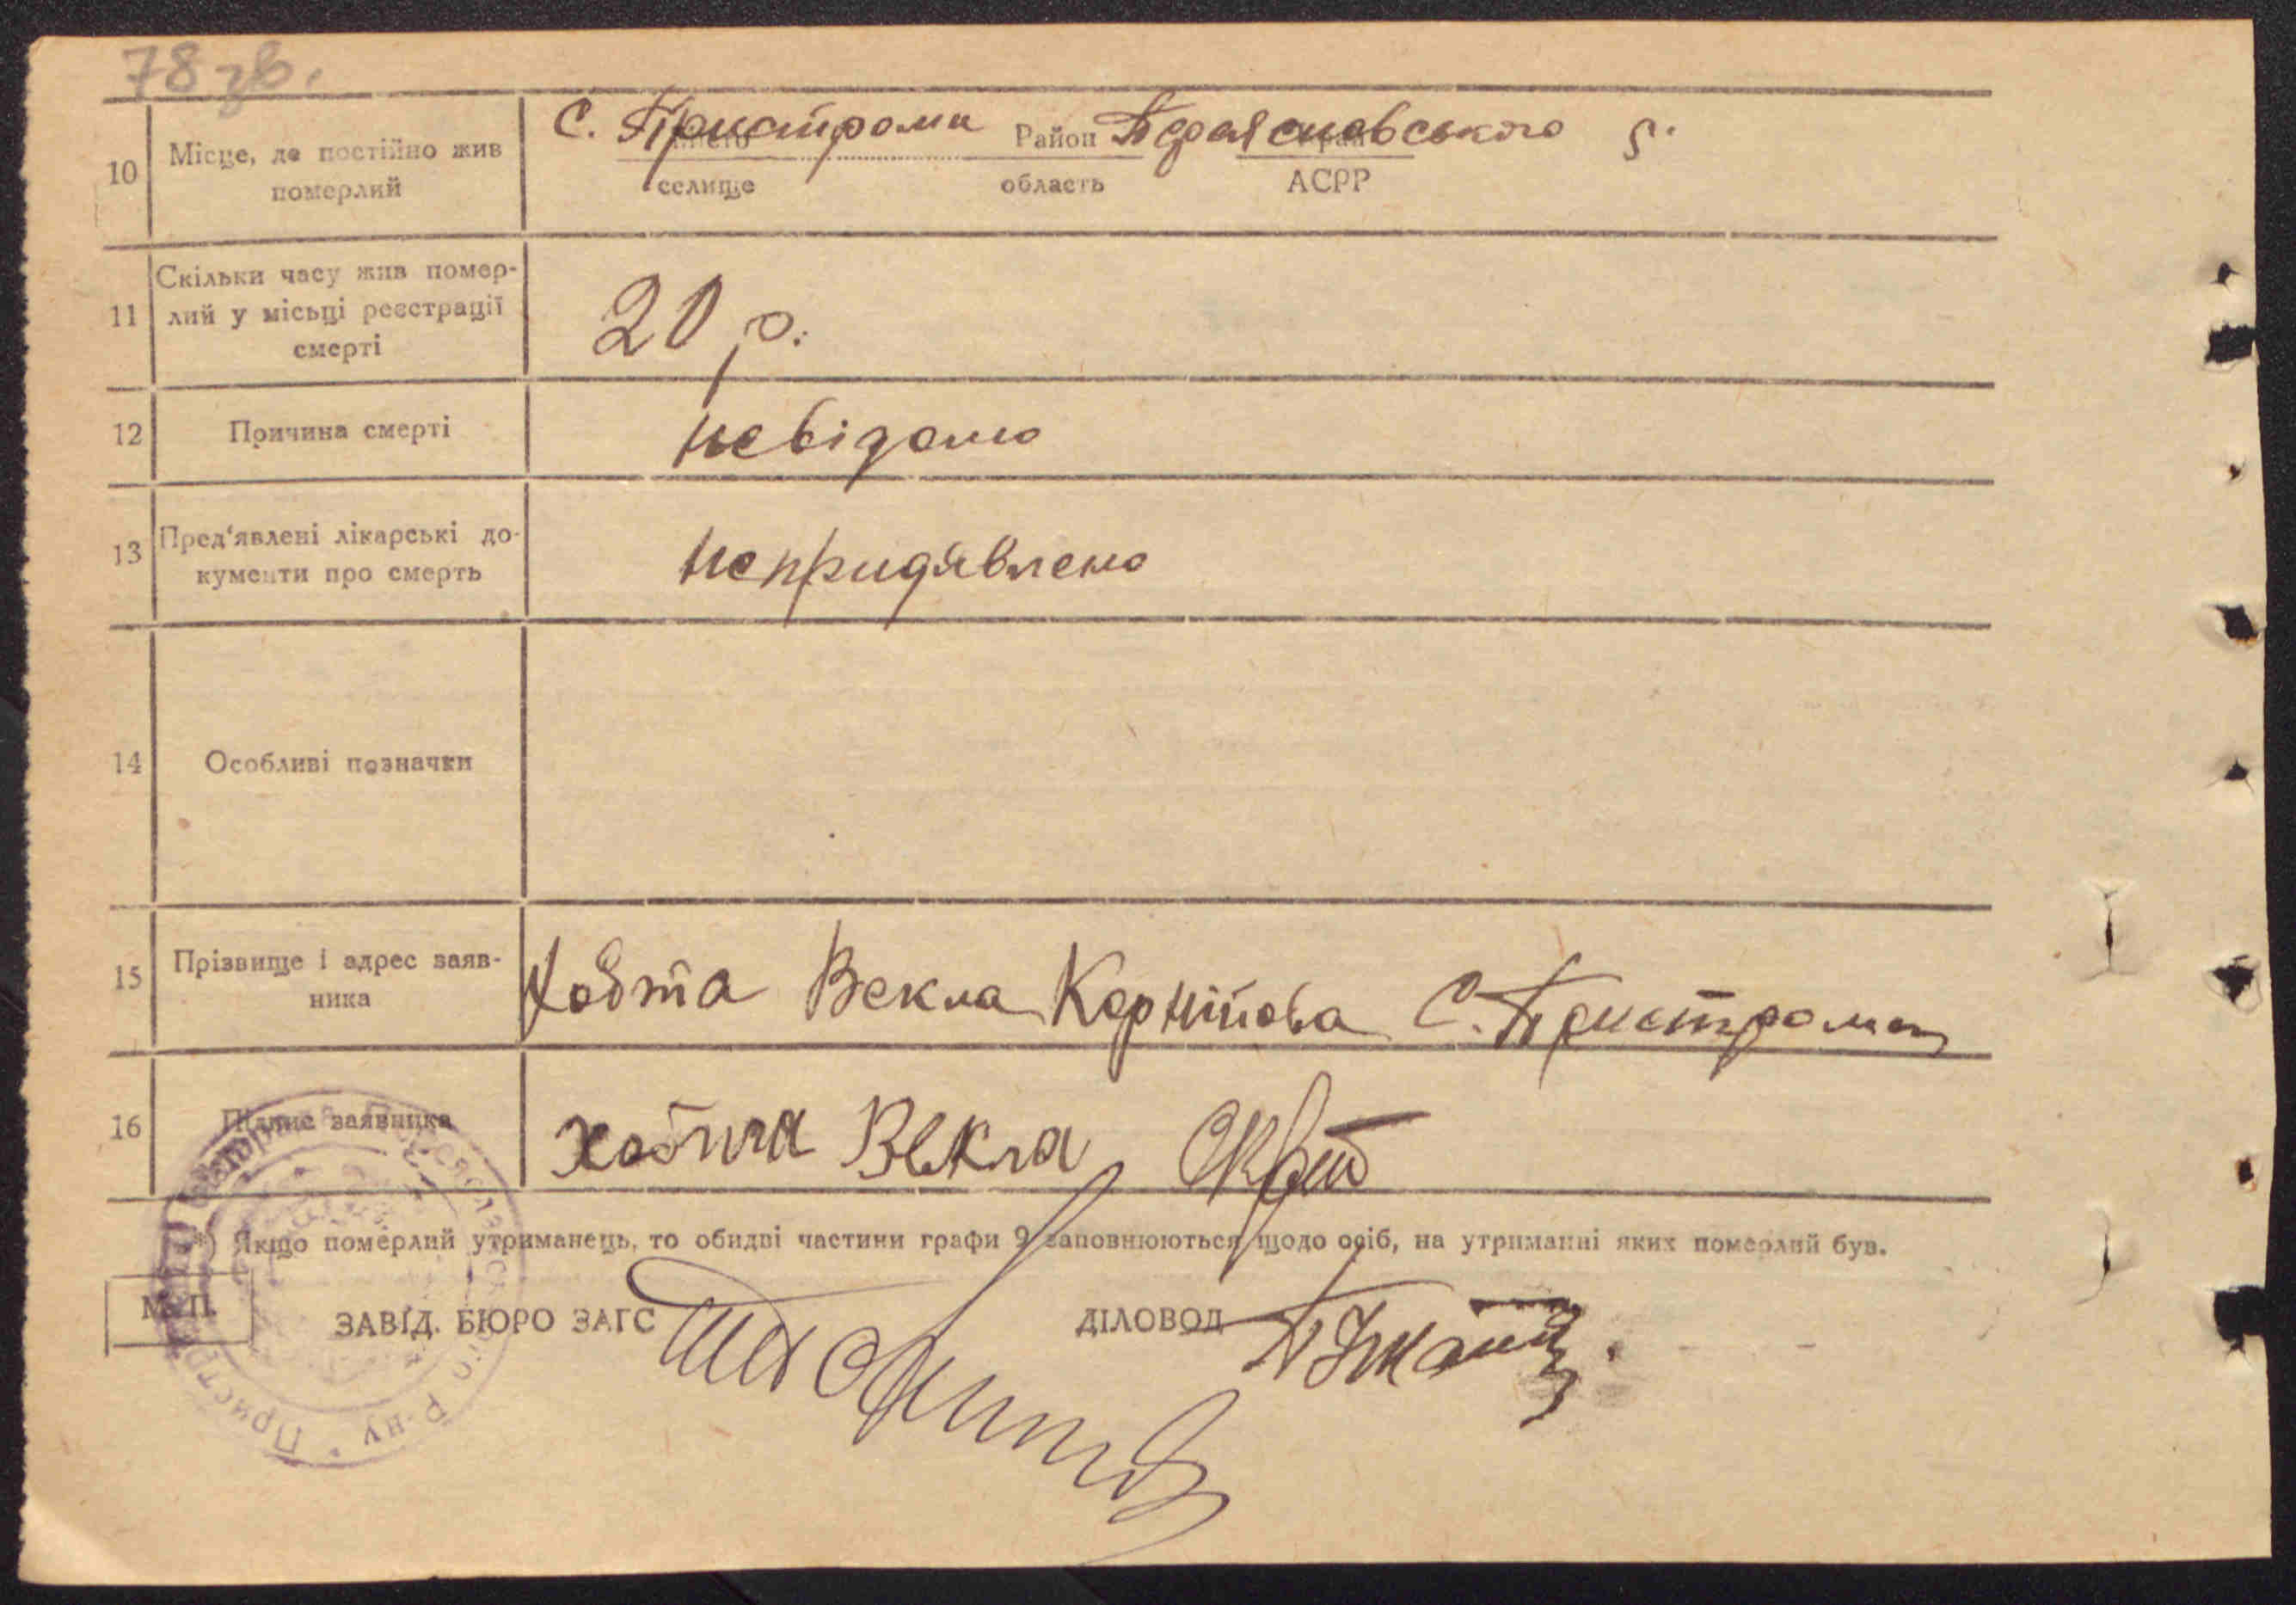 78 зв.
10 Місце, де постійно жив померлий
с. Пристроми Район Переяславського р.
місто край
селище область АСРР
11 Скільки часу жив помер-
лий у місьці реєстрації
смерті
20 р.
12 Причина смерті невідомо
13 Пред'явлені лікарські до-
кументи про смерть
непридявлено
14 Особливі позначки
15 Прізвище і адрес заяв-
ника
Ховта Векла Корнійова С. Пристроми
16 Підпис заявника
Ховта Векла
*) Якщо померлий утриманець, то обидві частини графи 9 заповнюються щодо осіб, на утриманні яких померлий був.
М. П.
ЗАВІД. БЮРО ЗАГС ДІЛОВОД